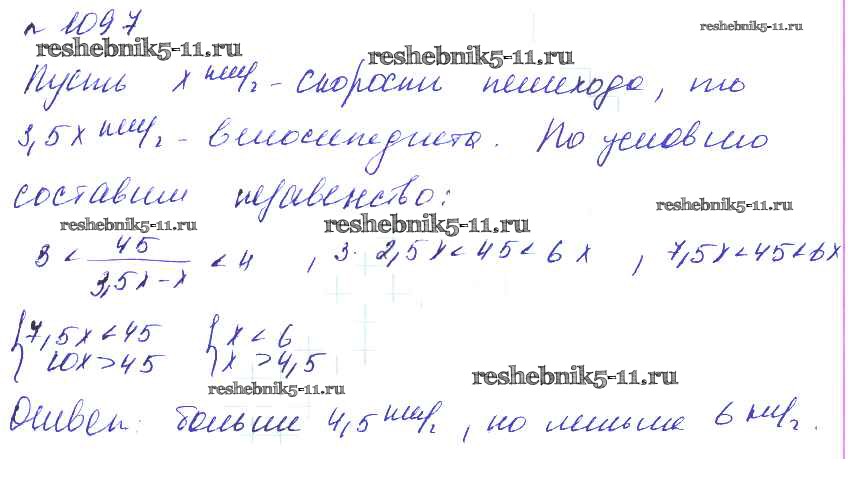 № 1097
reshebnik5-11.ru
reshebnik5-11.ru reshebnik5-11.ru
Пусть x км/г - скорости пешехода, то
3,5x км/г - велосипедиста. По условию
составим неравенство:
reshebnik5-11.ru
reshebnik5-11.ru reshebnik5-11.ru
3 < 45/(3,5x-x) < 4 , 3 · 2,5x < 45 < 6x , 7,5x < 45 < 6x
{7,5x < 45 {x < 6
{10x > 45 {x > 4,5
reshebnik5-11.ru reshebnik5-11.ru
Ответ: больше 4,5 км/г, но меньше 6 км/г.